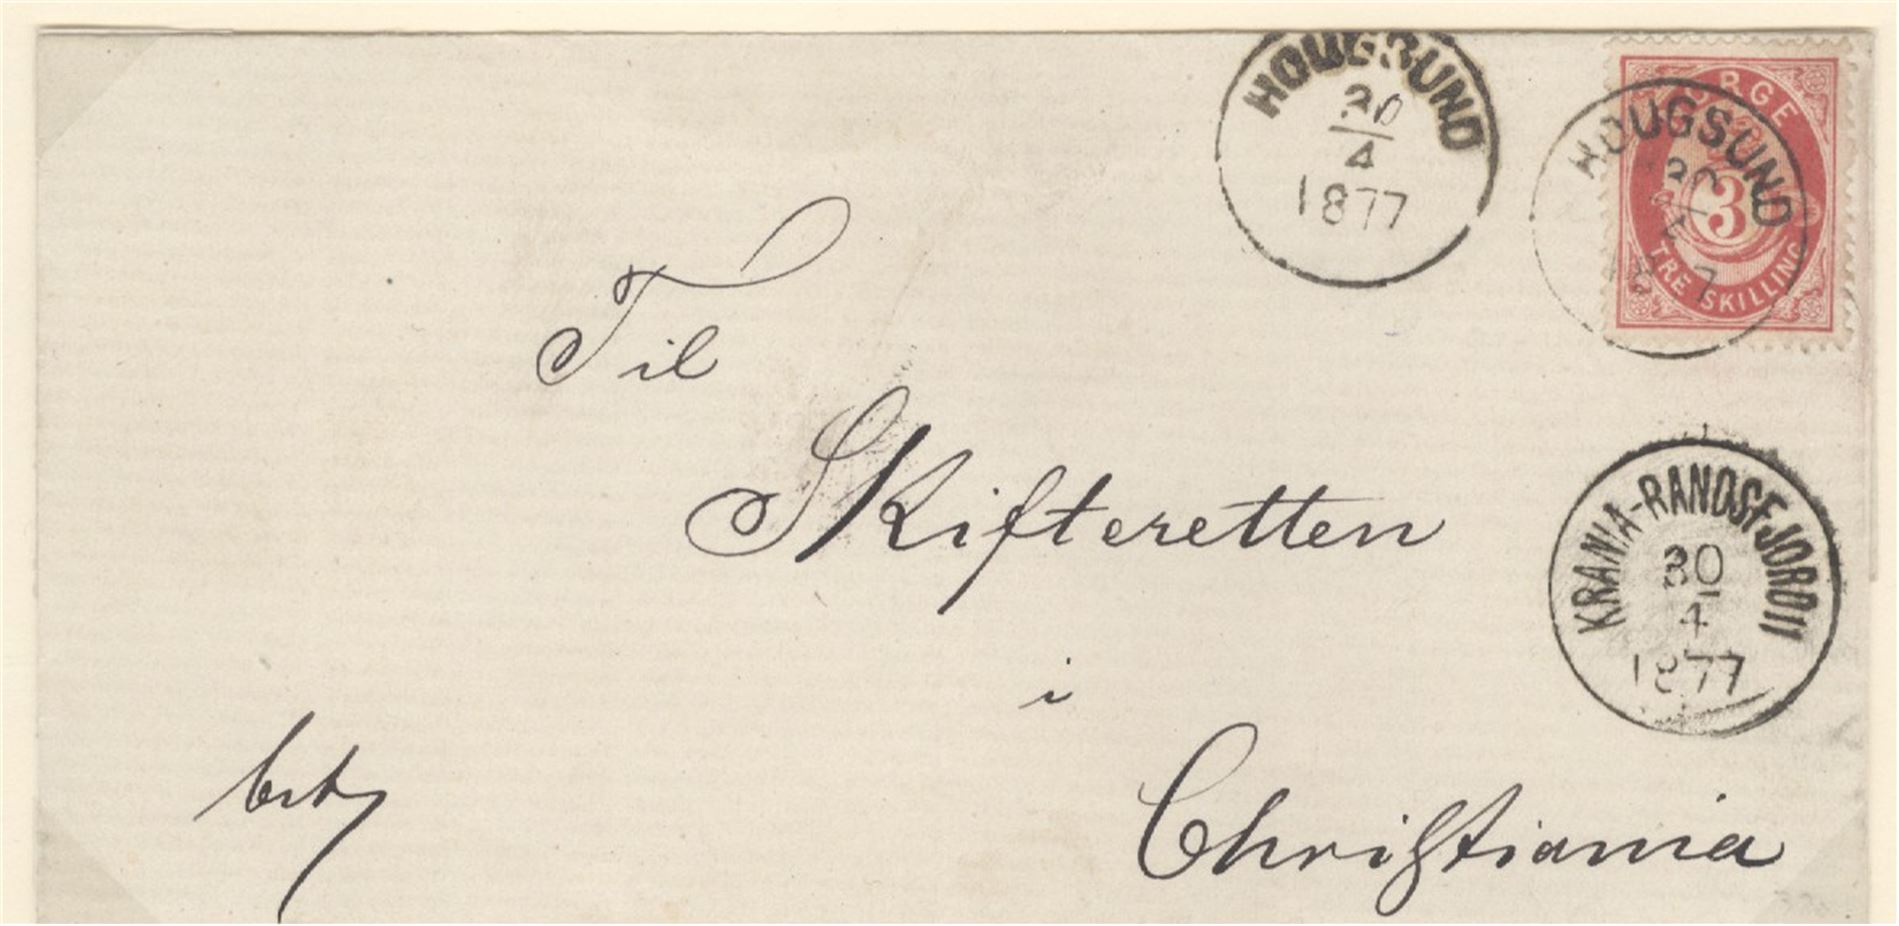 HOUGSUND
30
4
1877
RGE
3
TRE SKILLING
HOUGSUND
7
Til
Skifteretten
i
Christiania
KRANIA-RANDSFJORD II
30
4
1877